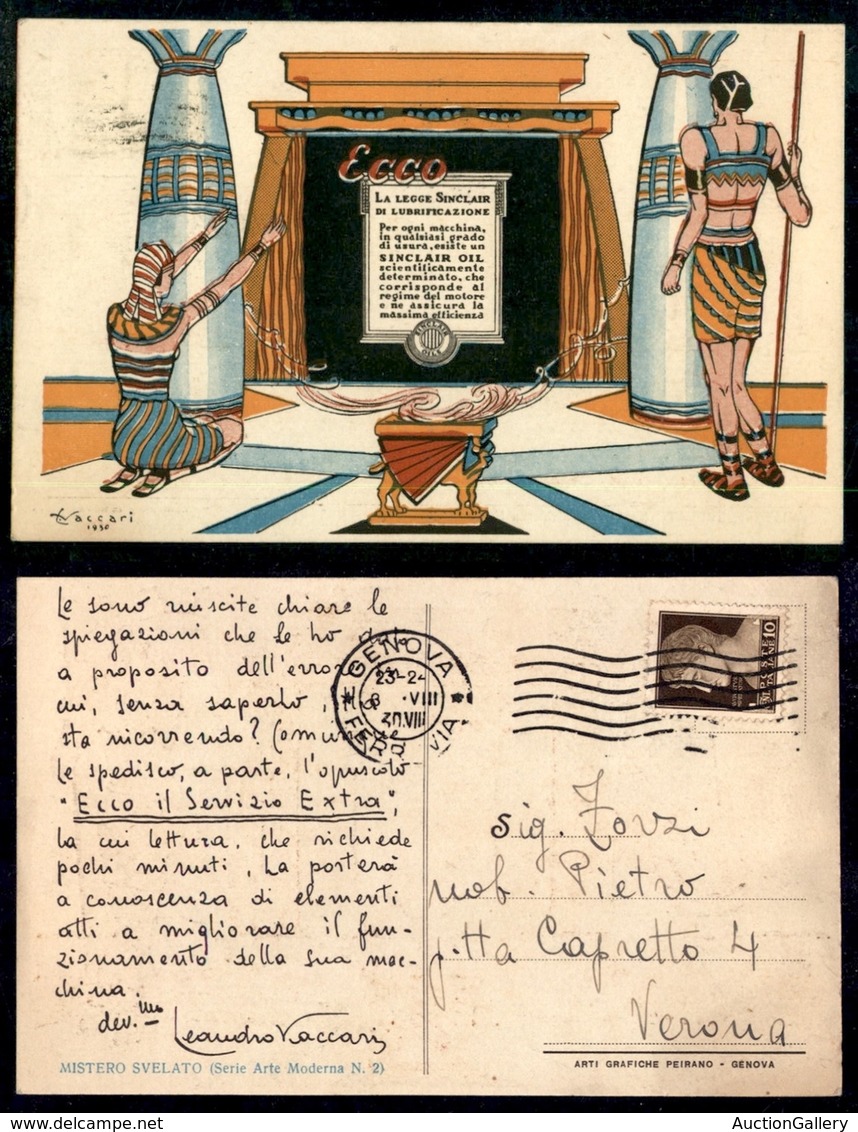 Ecco
LA LEGGE SINCLAIR
DI LUBRIFICAZIONE
Per ogni macchina,
in qualsiasi grado
di usura, esiste un
SINCLAIR OIL
scientificamente
determinato, che
corrisponde al
regime del motore
e ne assicura la
massima efficienza
SINCLAIR
OILS
Vaccari
1930
Le sono riuscite chiare le
spiegazioni che le ho
a proposito dell'
cui, senza saperlo,
sta ricorrendo?
Le spedisco, a parte, l'opuscolo
"Ecco il Servizio Extra",
la cui lettura, che richiede
pochi minuti, La porterà
a conoscenza di elementi
atti a migliorare il fun-
zionamento della sua mac-
china.
dev.mo
Leandro Vaccari
MISTERO SVELATO (Serie Arte Moderna N. 2)
GENOVA
VIII
FERROVIA
POSTE
ITALIANE
10
Sig. Zorzi
nob. Pietro
p.tta Capretto 4
Verona
ARTI GRAFICHE PEIRANO - GENOVA
AuctionGallery